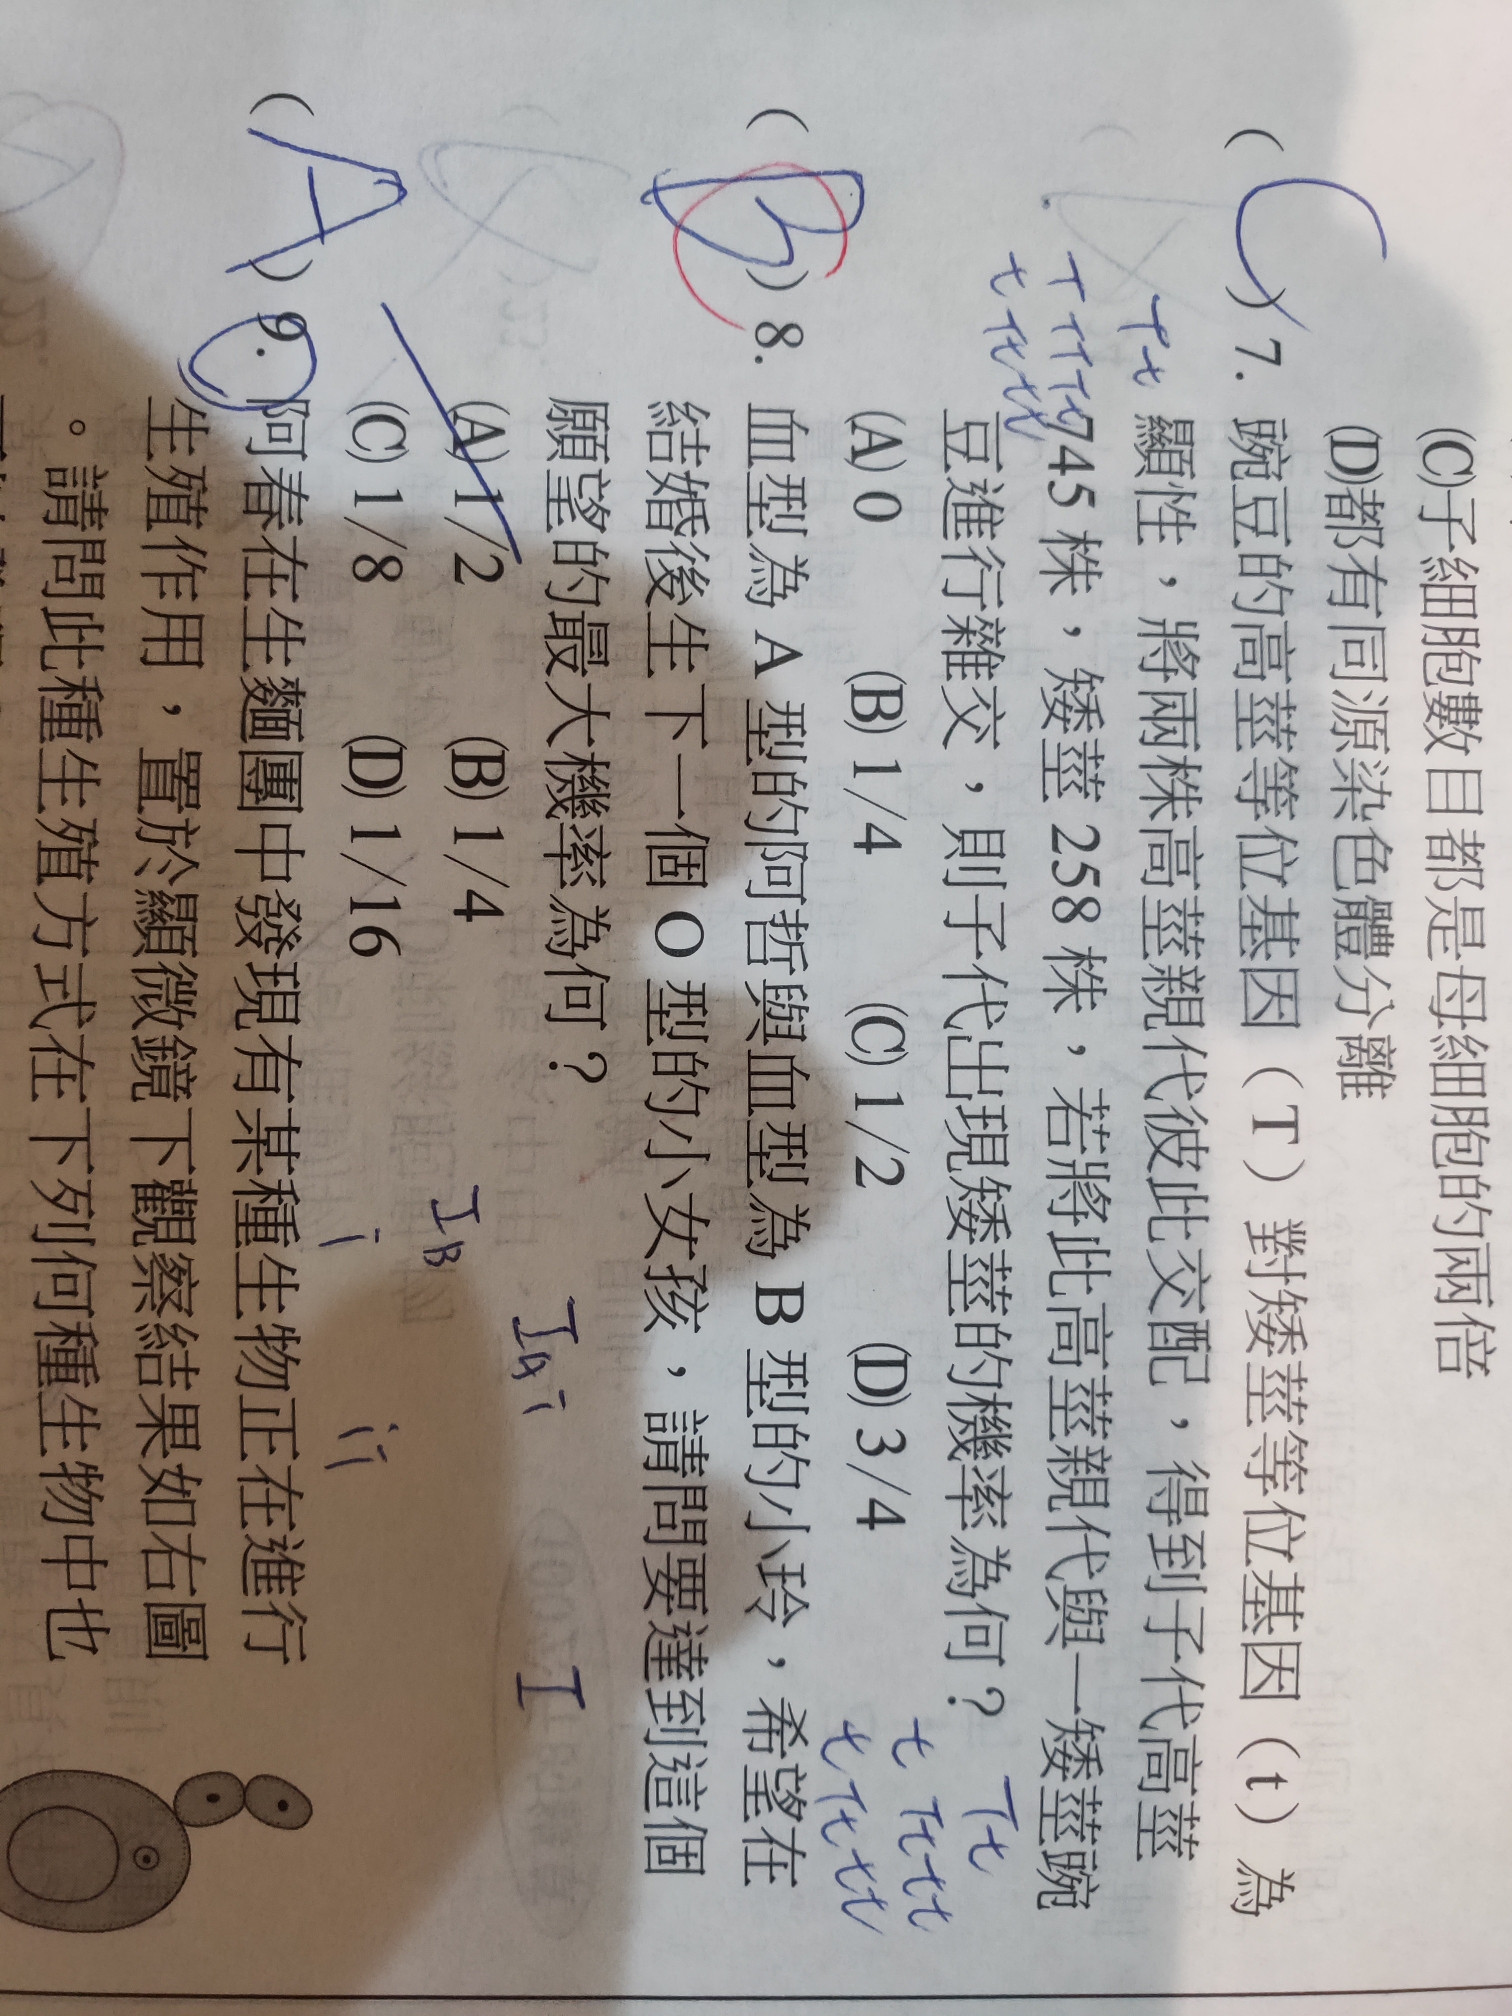 (C)子細胞數目都是母細胞的兩倍
(D)都有同源染色體分離
( C ) 7. 豌豆的高莖等位基因（T）對矮莖等位基因（t）為
顯性，將兩株高莖親代彼此交配，得到子代高莖
745 株，矮莖 258 株，若將此高莖親代與一矮莖豌
豆進行雜交，則子代出現矮莖的機率為何？
(A) 0 (B) 1/4 (C) 1/2 (D) 3/4
T t
T TT Tt
t Tt tt
T t
t Tt tt
t Tt tt
( B ) 8. 血型為 A 型的阿哲與血型為 B 型的小玲，希望在
結婚後生下一個 O 型的小女孩，請問要達到這個
願望的最大機率為何？
(A) 1/2 (B) 1/4
(C) 1/8 (D) 1/16
I i I
I B
i ii
( A ) 9. 阿春在生麵團中發現有某種生物正在進行
生殖作用，置於顯微鏡下觀察結果如右圖
。請問此種生殖方式在下列何種生物中也